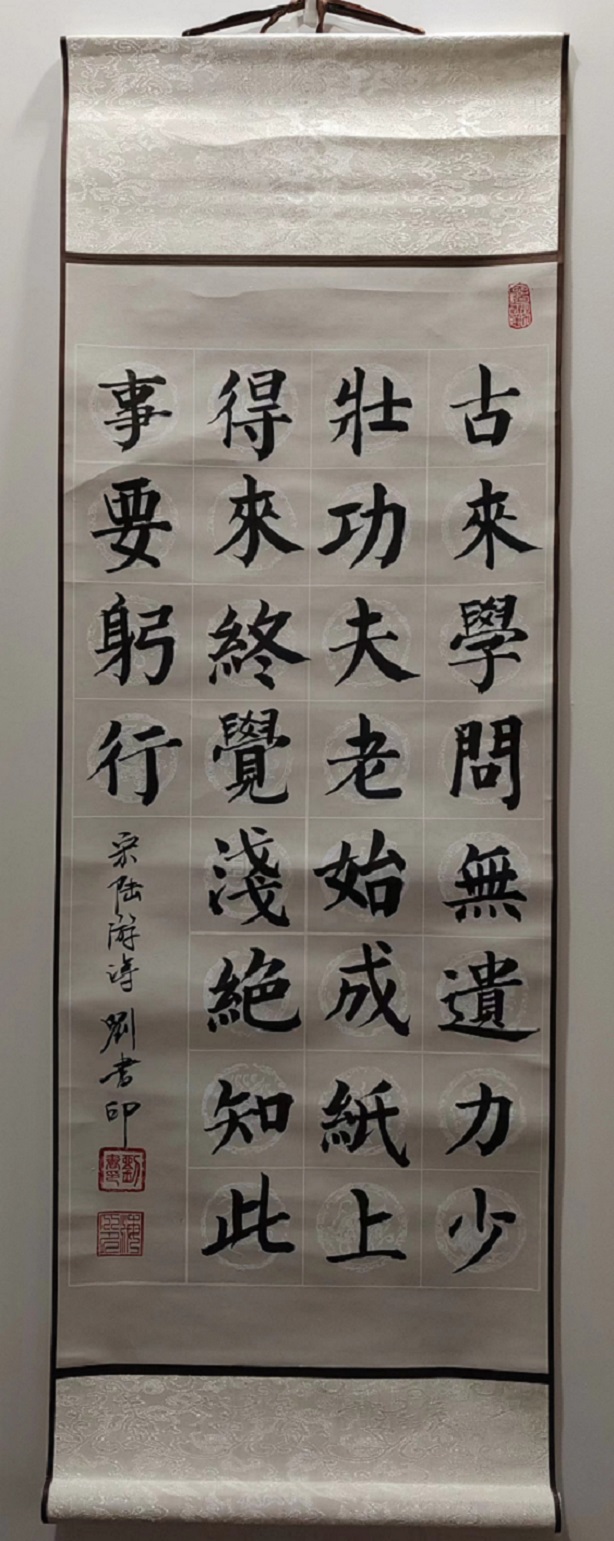 古來學問無遺力少
壯功夫老始成紙上
得來終覺淺絕知此
事要躬行
宋陸游詩 劉書印